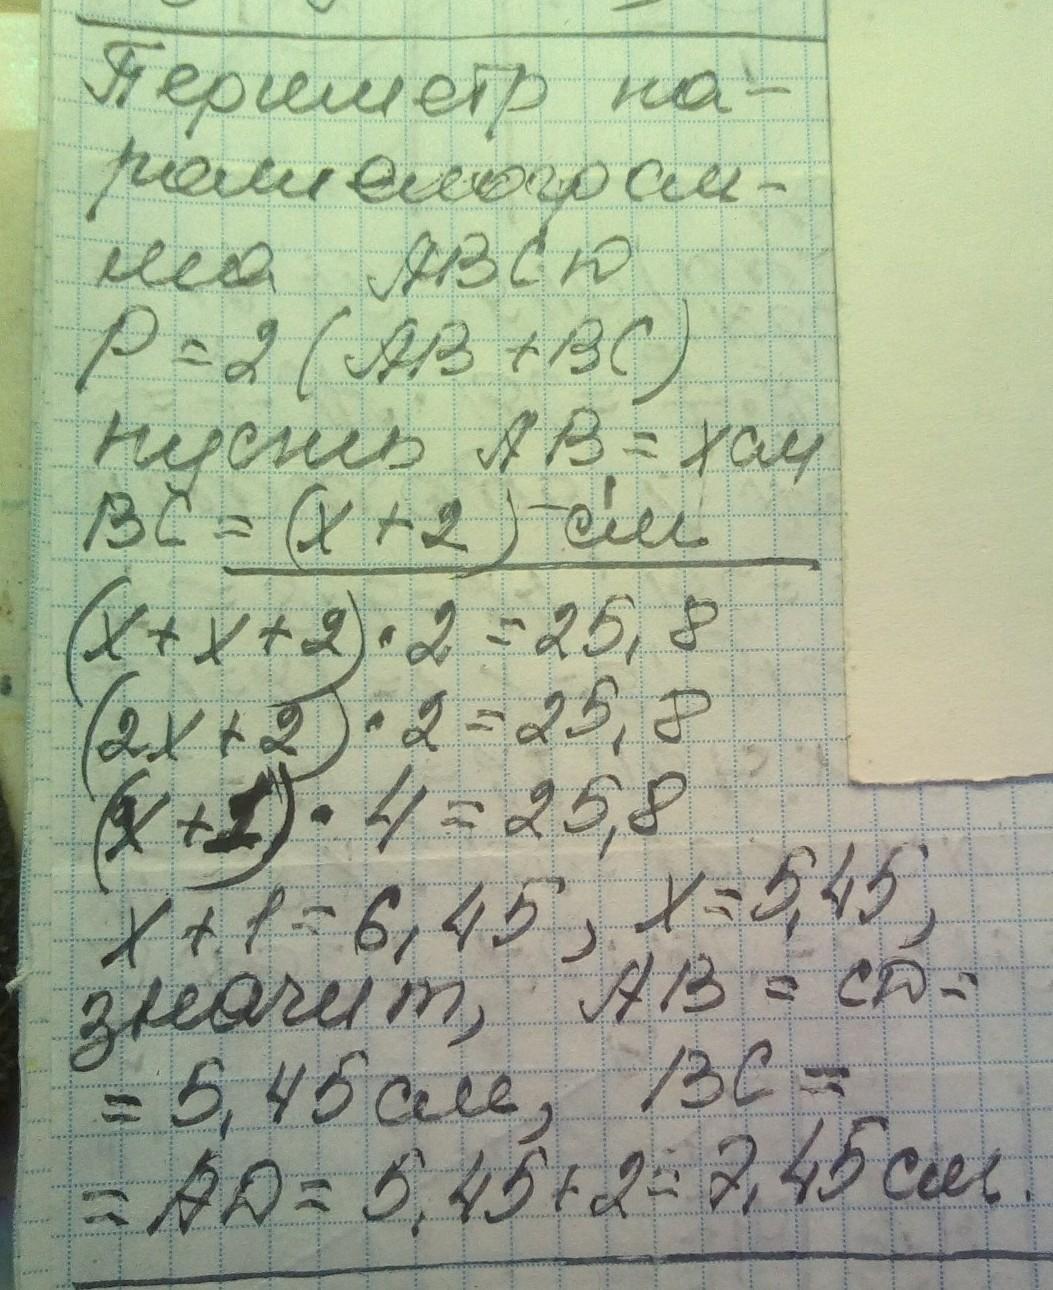 Периметр па-
раллелограм-
ма ABCD
P = 2 (AB + BC)
пусть AB = x см
BC = (x + 2) см
(x + x + 2) · 2 = 25,8
(2x + 2) · 2 = 25,8
(x + 1) · 4 = 25,8
x + 1 = 6,45, x = 5,45,
значит, AB = CD =
= 5,45 см, BC =
= AD = 5,45 + 2 = 7,45 см.